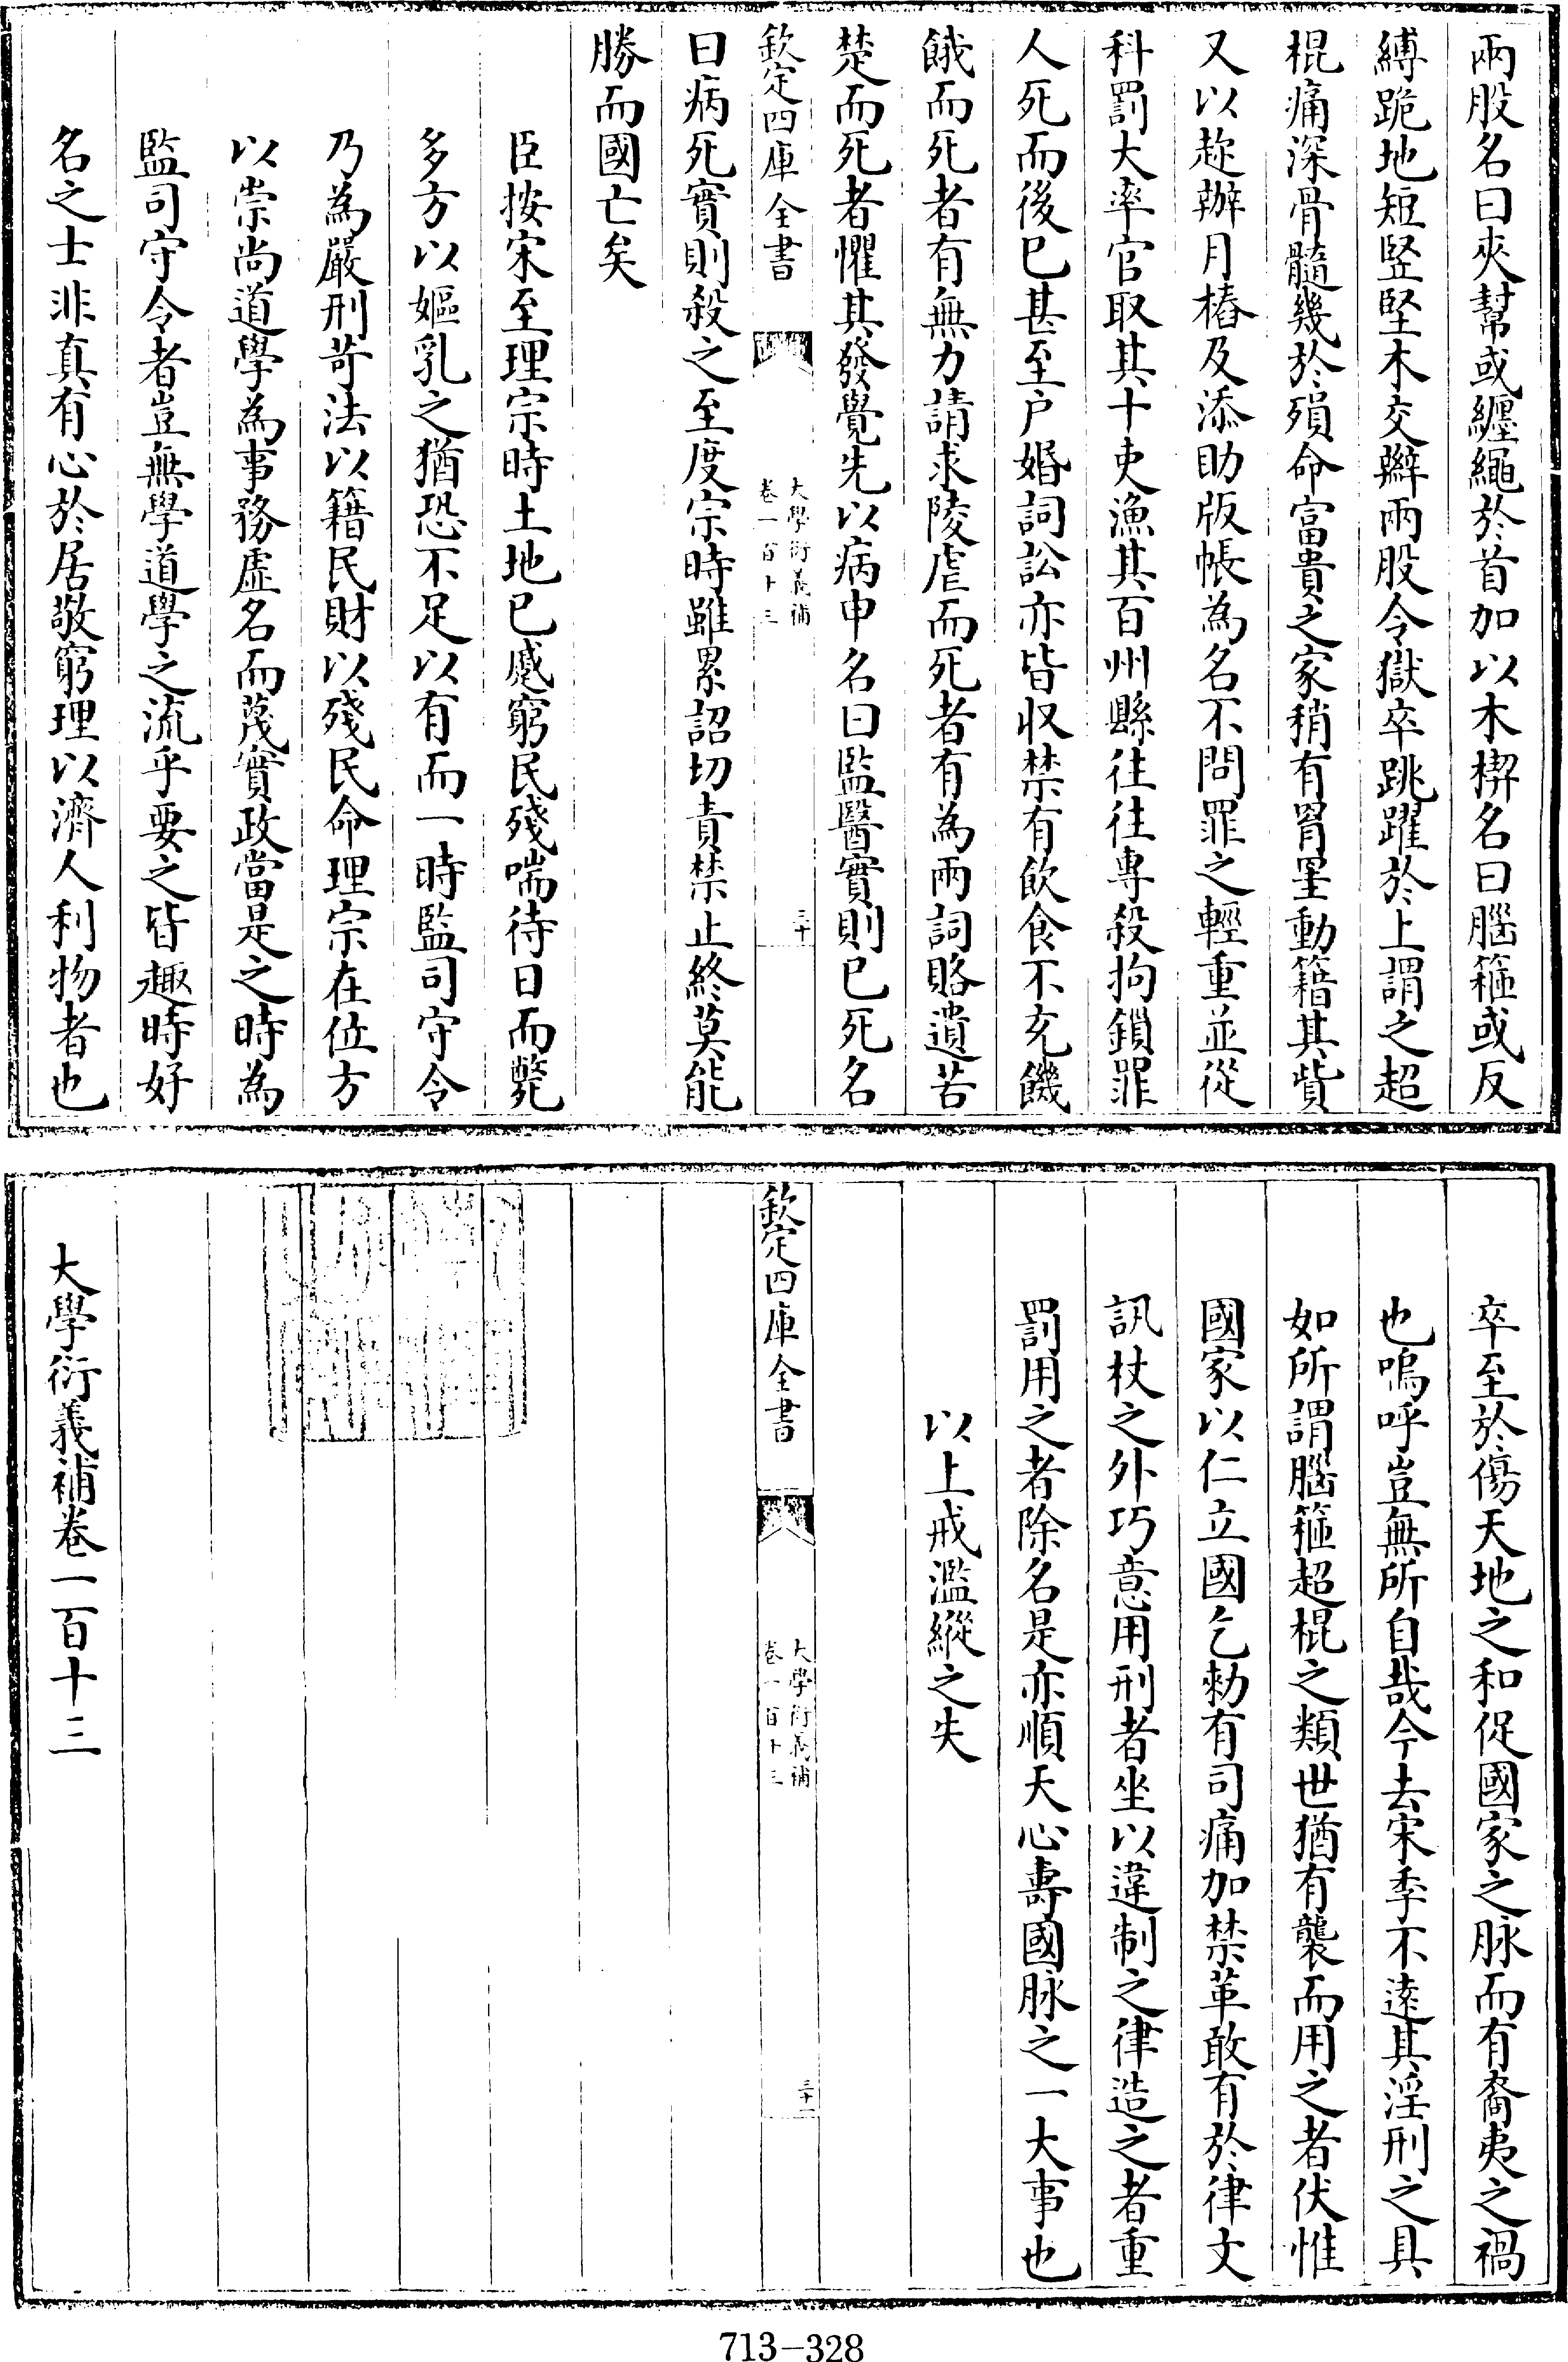 兩股名曰夾幫或纏繩於首加以木楔名曰腦箍或反
縛跪地短竪堅木交辮兩股令獄卒跳躍於上謂之超
棍痛深骨髓幾於殞命富貴之家稍有罥罣動籍其貲
又以趂辦月樁及添助版帳為名不問罪之輕重並從
科罰大率官取其十吏漁其百州縣往往專殺拘鎖罪
人死而後已甚至户婚詞訟亦皆收禁有飲食不充饑
餓而死者有無力請求陵虐而死者有為兩詞賂遺苦
楚而死者懼其發覺先以病申名曰監醫實則已死名
欽定四庫全書
大學衍義補
卷一百十三
三十
曰病死實則殺之至度宗時雖累詔切責禁止終莫能
勝而國亡矣
臣按宋至理宗時土地已蹙窮民殘喘待日而斃
多方以嫗乳之猶恐不足以有而一時監司守令
乃為嚴刑苛法以籍民財以殘民命理宗在位方
以崇尚道學為事務虛名而蔑實政當是之時為
監司守令者豈無學道學之流乎要之皆趣時好
名之士非真有心於居敬窮理以濟人利物者也
卒至於傷天地之和促國家之脉而有裔夷之禍
也嗚呼豈無所自哉今去宋季不遠其淫刑之具
如所謂腦箍超棍之類世猶有襲而用之者伏惟
國家以仁立國乞勅有司痛加禁革敢有於律文
訊杖之外巧意用刑者坐以違制之律造之者重
罰用之者除名是亦順天心壽國脉之一大事也
以上戒濫縱之失
欽定四庫全書
大學衍義補
卷一百十三
三十一
大學衍義補卷一百十三
713-328